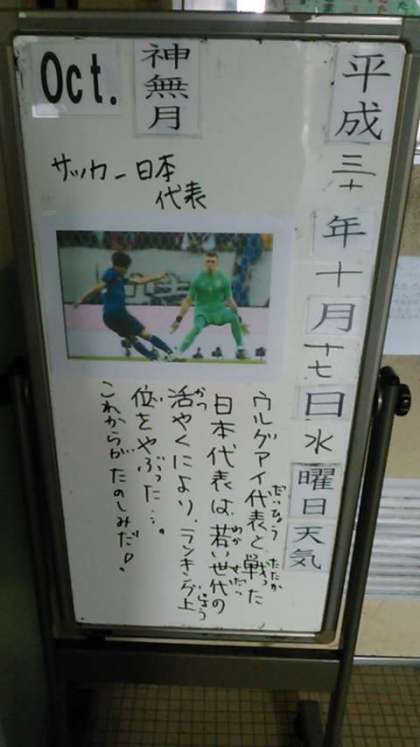 平成三十年十月十七日水曜日天気
神無月
Oct.
サッカー日本
代表
ウルグアイ代表と戦った
だいひょう たたか
日本代表は、若い世代の
わか せだい
活やくにより、ランキング上
かつ じょう
位をやぶった…。
い
これからがたのしみだ!